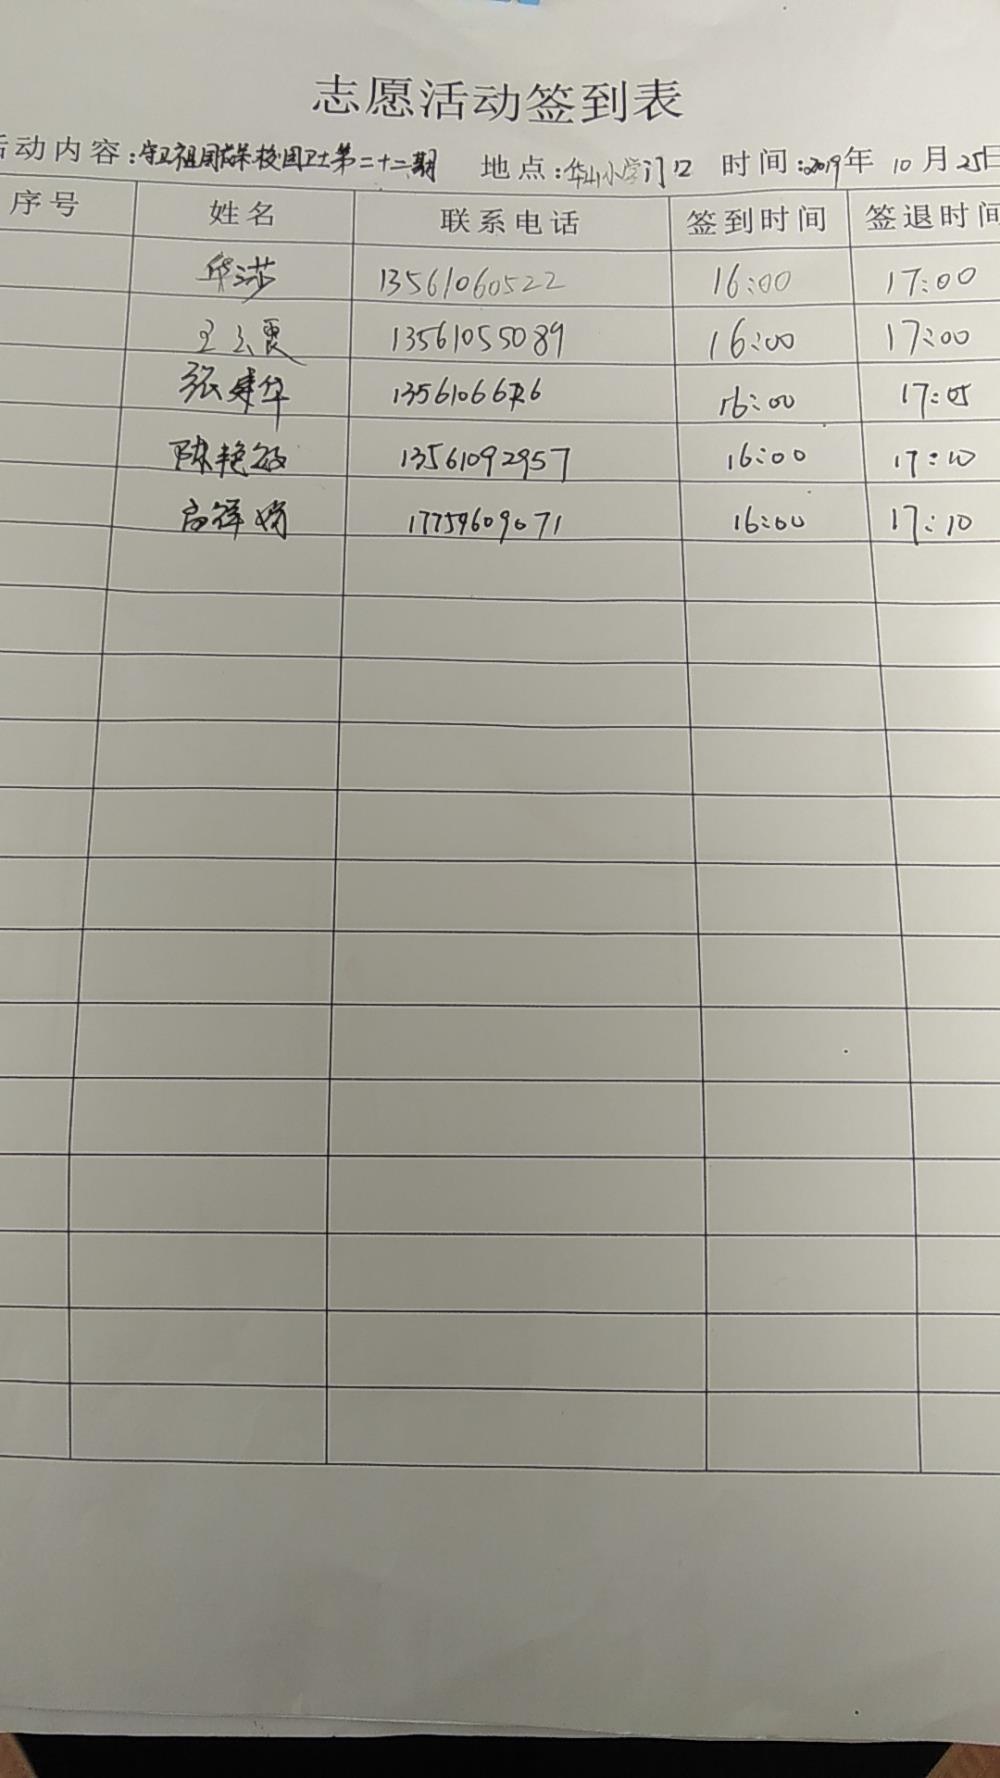 志愿活动签到表
活动内容:守卫祖国花朵校园卫士第二十二期 地点:华山小学门口 时间:2019年 10月25日
序号 姓名 联系电话 签到时间 签退时间
华莎 13561060522 16:00 17:00
13561055089 16:00 17:00
张建华 16:00 17:05
陈艳敏 13561092957 16:00 17:10
17754609071 16:00 17:10